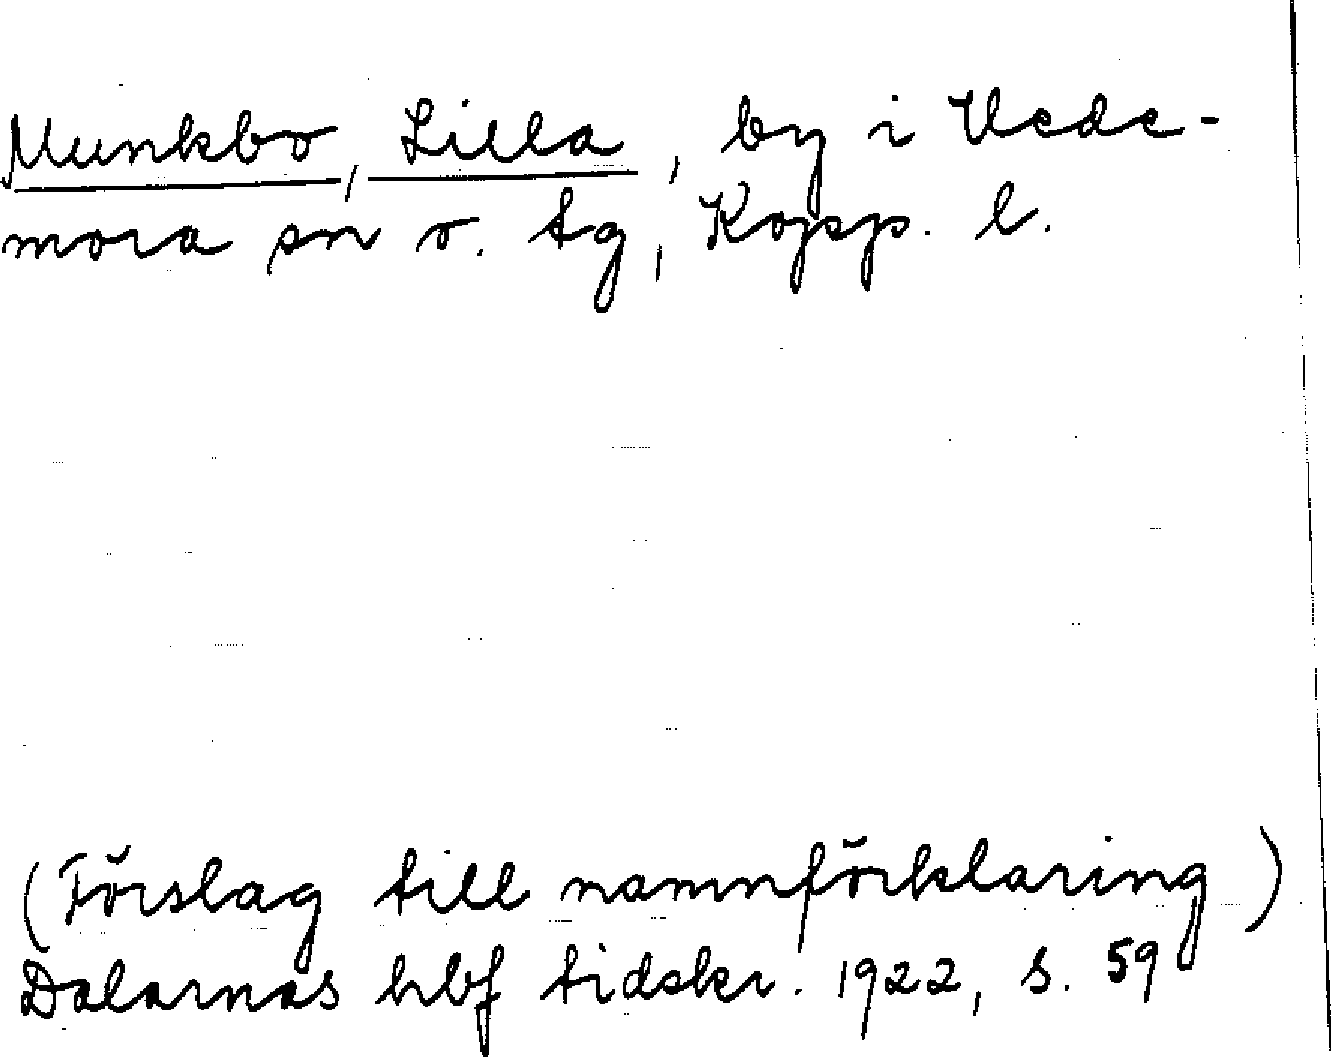 Munkbo, Lilla, by i Vede-
mora sn o. tg, Kopp. l.
(Förslag till namnförklaring)
Dalarnas hbf tidskr. 1922, s. 59